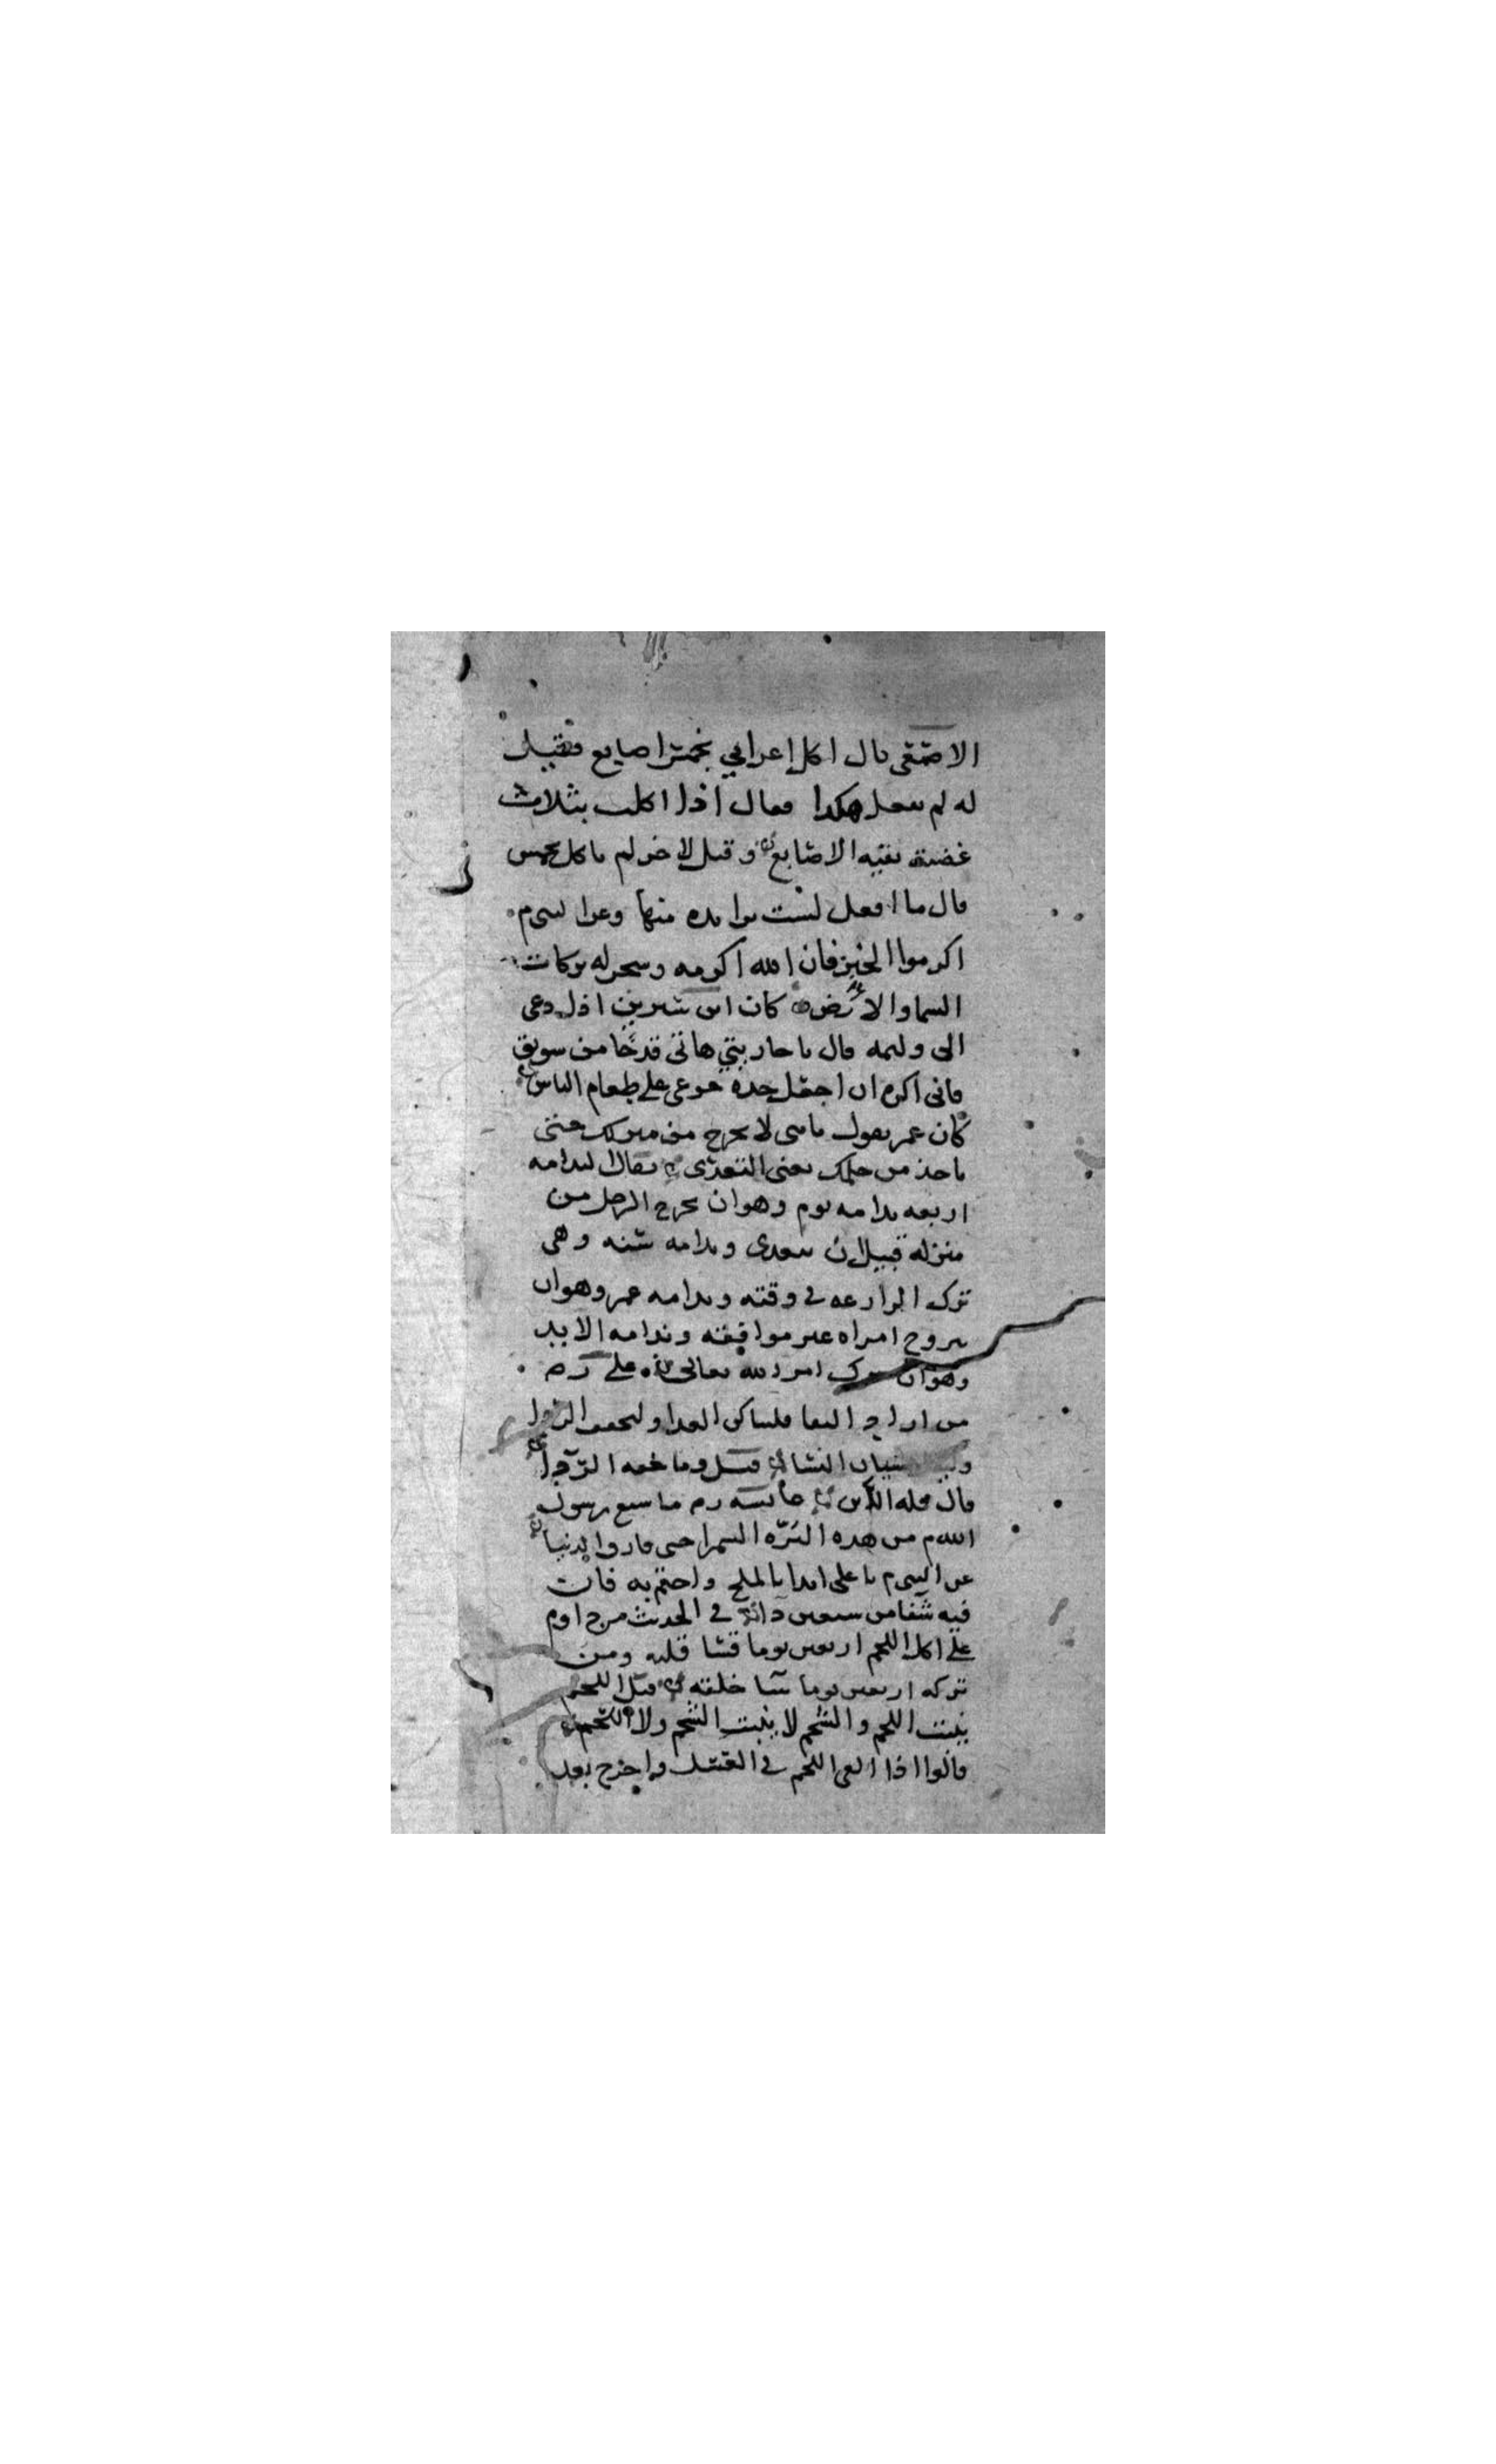 الاصمعى قال اكل اعرابي بخمس اصابع فقيل
له لم تفعل هكذا فقال اذا اكلت بثلاث
غضبت بقيه الاصابع وقيل لاخر لم تاكل بخمس
قال ما افعل لست بزايده منها وعن النبى م
اكرموا الخبز فان الله اكرمه وسخر له بركات
السما والارض كان ابن سيرين اذا دعى
الى وليمه قال يا جاريتي هاتى قدحا من سويق
فانى اكره ان اجعل حدة جوعى على طعام الناس
كان عمر يقول يا بنى لا تخرج من منزلك حتى
تاخذ من حلمك يعنى التغدى يقال الندامه
اربعه ندامه يوم وهو ان يخرج الرجل من
منزله قبل ان يتغدى وندامه سنه وهى
ترك الزراعه في وقته وندامه عمر وهو ان
يتزوج امراه غير موافقته وندامه الابد
وهو ان يترك امر الله تعالى على رضه
من اراد البقا فليباكر الغدا وليخفف الردا
وليقل غشيان النسا قيل وما خفه الردا
قال قله الدين عايشه رض ما شبع رسول
الله م من هذه البره السمرا حتى فارق الدنيا
عن النبى م يا على ابدا بالملح واختم به فان
فيه شفا من سبعين دا في الحديث من داوم
على اكل اللحم اربعين يوما قسا قلبه ومن
تركه اربعين يوما سا خلقه قيل اللحم
ينبت اللحم والشحم لا ينبت الشحم ولا اللحم
قالوا اذا القى اللحم في العسل واخرج بعد